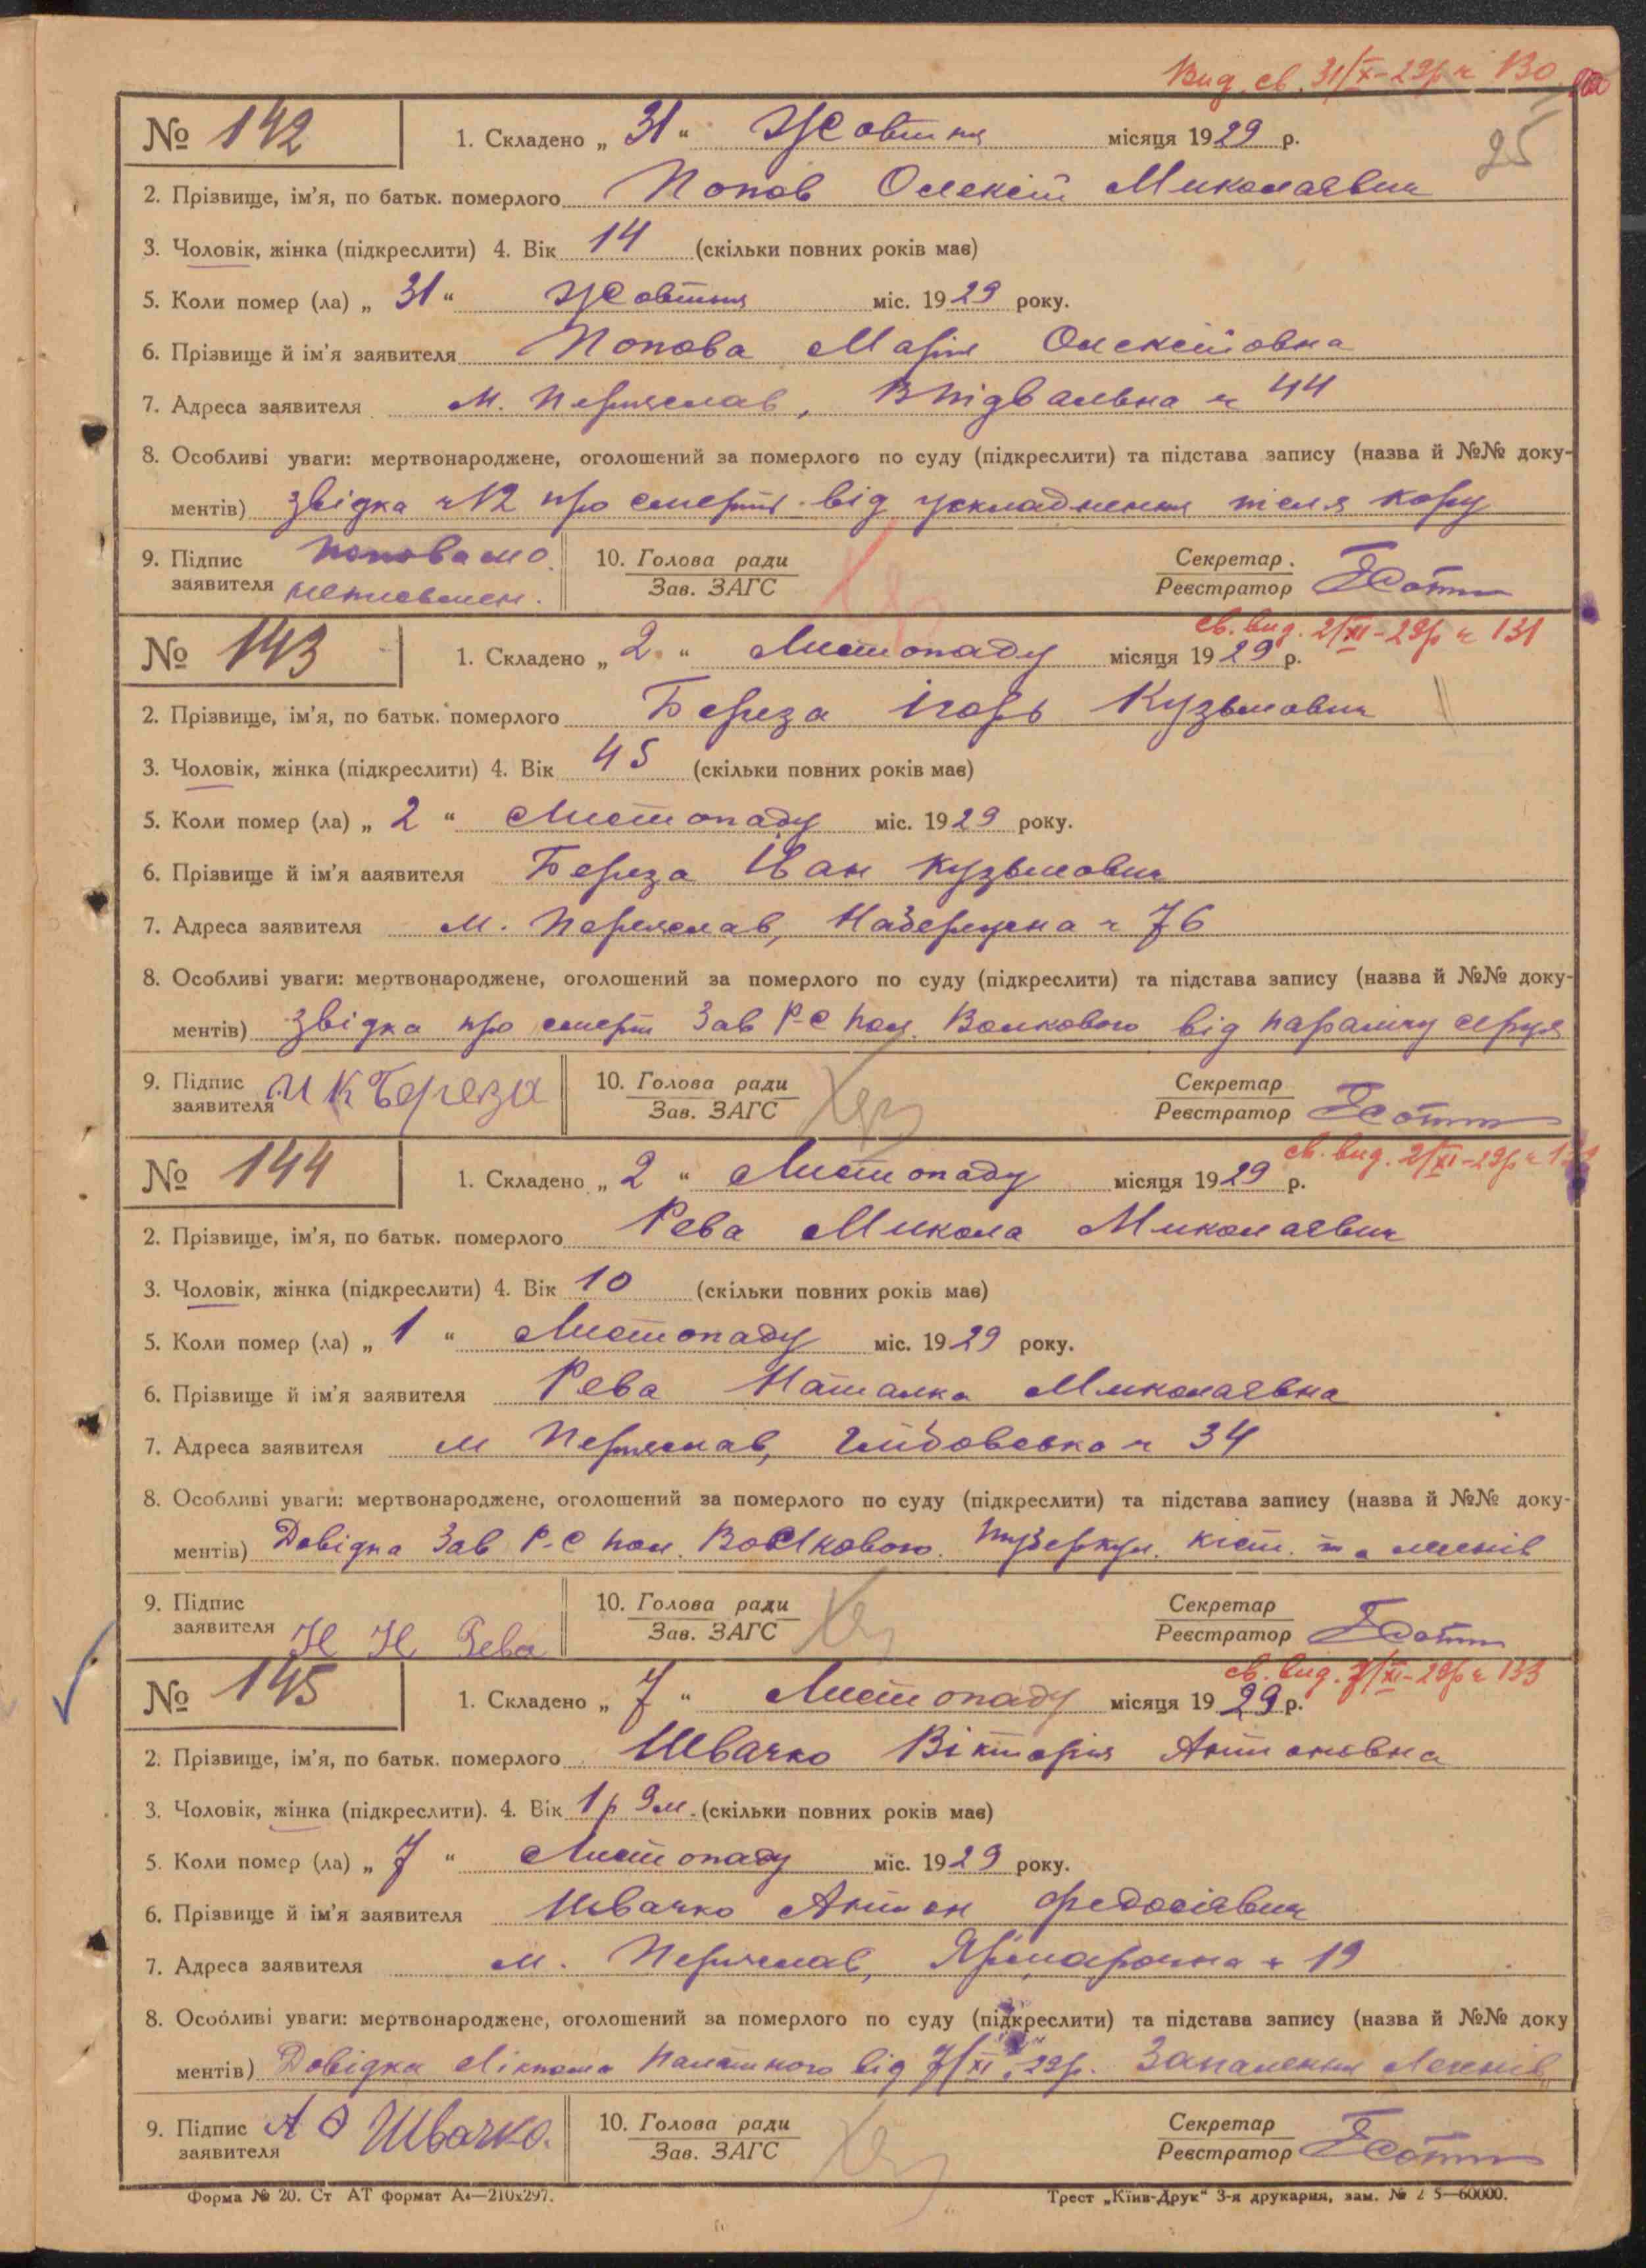 Вид. св. 31/X-29р ч 130
25
№ 142 1. Складено „ 31 “ Жовтня місяця 1929 р.
2. Прізвище, ім’я, по батьк. померлого Попов Олексій Миколаєвич
3. Чоловік, жінка (підкреслити) 4. Вік 14 (скільки повних років має)
5. Коли помер (ла) „ 31 “ Жовтня міс. 1929 року.
6. Прізвище й ім’я заявителя Попова Марія Олексіївна
7. Адреса заявителя м. Переяслав, Впідвальна ч 44
8. Особливі уваги: мертвонароджене, оголошений за померлого по суду (підкреслити) та підстава запису (назва й №№ доку-
ментів) звідка ч 12 про смерть від ускладнення після кору
9. Підпис Попова
заявителя неписьмен.
10. Голова ради
Зав. ЗАГС
Секретар.
Реєстратор
св. вид. 2/XI-29р ч 131
№ 143 1. Складено „ 2 “ Листопаду місяця 1929 р.
2. Прізвище, ім’я, по батьк. померлого Береза Ігорь Кузьмович
3. Чоловік, жінка (підкреслити) 4. Вік 45 (скільки повних років має)
5. Коли помер (ла) „ 2 “ Листопаду міс. 1929 року.
6. Прізвище й ім’я ааявителя Береза Іван Кузьмович
7. Адреса заявителя м. Переяслав, Набережна ч 76
8. Особливі уваги: мертвонароджене, оголошений за померлого по суду (підкреслити) та підстава запису (назва й №№ доку-
ментів) звідка про смерть Зав Р-С пол. Волкового від параличу серця
9. Підпис И К Береза
заявителя
10. Голова ради
Зав. ЗАГС
Секретар
Реєстратор
св. вид. 2/XI-29р ч
№ 144 1. Складено „ 2 “ Листопаду місяця 1929 р.
2. Прізвище, ім’я, по батьк. померлого Рева Микола Миколаєвич
3. Чоловік, жінка (підкреслити) 4. Вік 10 (скільки повних років має)
5. Коли помер (ла) „ 1 “ Листопаду міс. 1929 року.
6. Прізвище й ім’я заявителя Рева Наталка Миколаєвна
7. Адреса заявителя м Переяслав, ч 34
8. Особливі уваги: мертвонароджене, оголошений за померлого по суду (підкреслити) та підстава запису (назва й №№ доку-
ментів) Довідка Зав Р-С пол. Волкового. туберкул. кіст. та легенів
9. Підпис
заявителя Н Н Рева
10. Голова ради
Зав. ЗАГС
Секретар
Реєстратор
св. вид. 7/XI-29р ч 133
№ 145 1. Складено „ 7 “ Листопаду місяця 1929 р.
2. Прізвище, ім’я, по батьк. померлого Швачко Вікторія Антоновна
3. Чоловік, жінка (підкреслити). 4. Вік 1р 9м. (скільки повних років має)
5. Коли помер (ла) „ 7 “ Листопаду міс. 1929 року.
6. Прізвище й ім’я заявителя Швачко Антон Федосієвич
7. Адреса заявителя м. Переяслав, Ярмарочна ч 19
8. Особливі уваги: мертвонароджене, оголошений за померлого по суду (підкреслити) та підстава запису (назва й №№ доку
ментів) Довідка від 7/XI-29р. Запалення Легенів
9. Підпис А Ф Швачко.
заявителя
10. Голова ради
Зав. ЗАГС
Секретар
Реєстратор
Форма № 20. Ст АТ формат А4—210х297.
Трест „Київ-Друк“ 3-я друкарня, зам. № 2 5—60000.